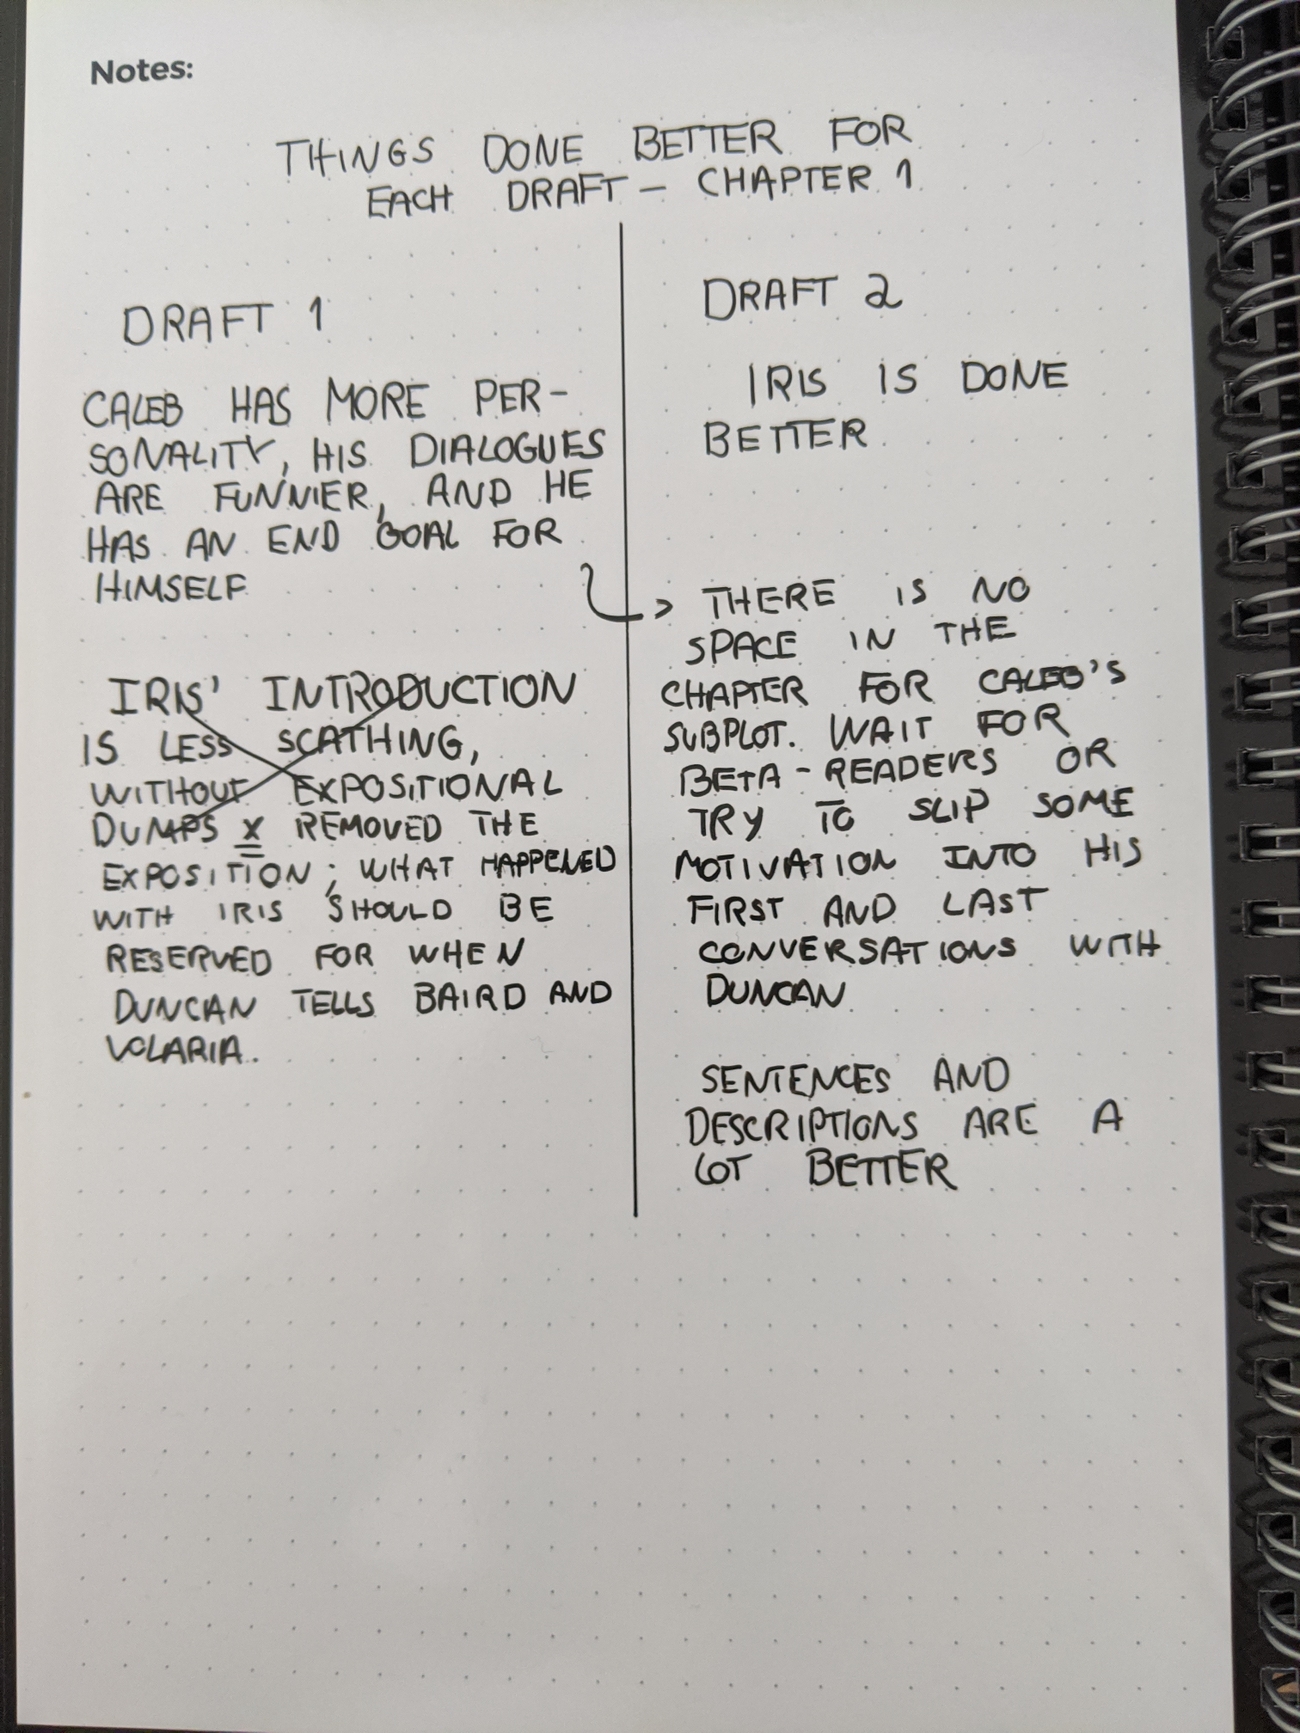 Notes:
THINGS DONE BETTER FOR
EACH DRAFT - CHAPTER 1
DRAFT 1
CALEB HAS MORE PER-
SONALITY, HIS DIALOGUES
ARE FUNNIER, AND HE
HAS AN END GOAL FOR
HIMSELF
IRIS' INTRODUCTION
IS LESS SCATHING,
WITHOUT EXPOSITIONAL
DUMPS x REMOVED THE
EXPOSITION; WHAT HAPPENED
WITH IRIS SHOULD BE
RESERVED FOR WHEN
DUNCAN TELLS BAIRD AND
VOLARIA.
DRAFT 2
IRIS IS DONE
BETTER
> THERE IS NO
SPACE IN THE
CHAPTER FOR CALEB'S
SUBPLOT. WAIT FOR
BETA-READERS OR
TRY TO SLIP SOME
MOTIVATION INTO HIS
FIRST AND LAST
CONVERSATIONS WITH
DUNCAN
SENTENCES AND
DESCRIPTIONS ARE A
LOT BETTER